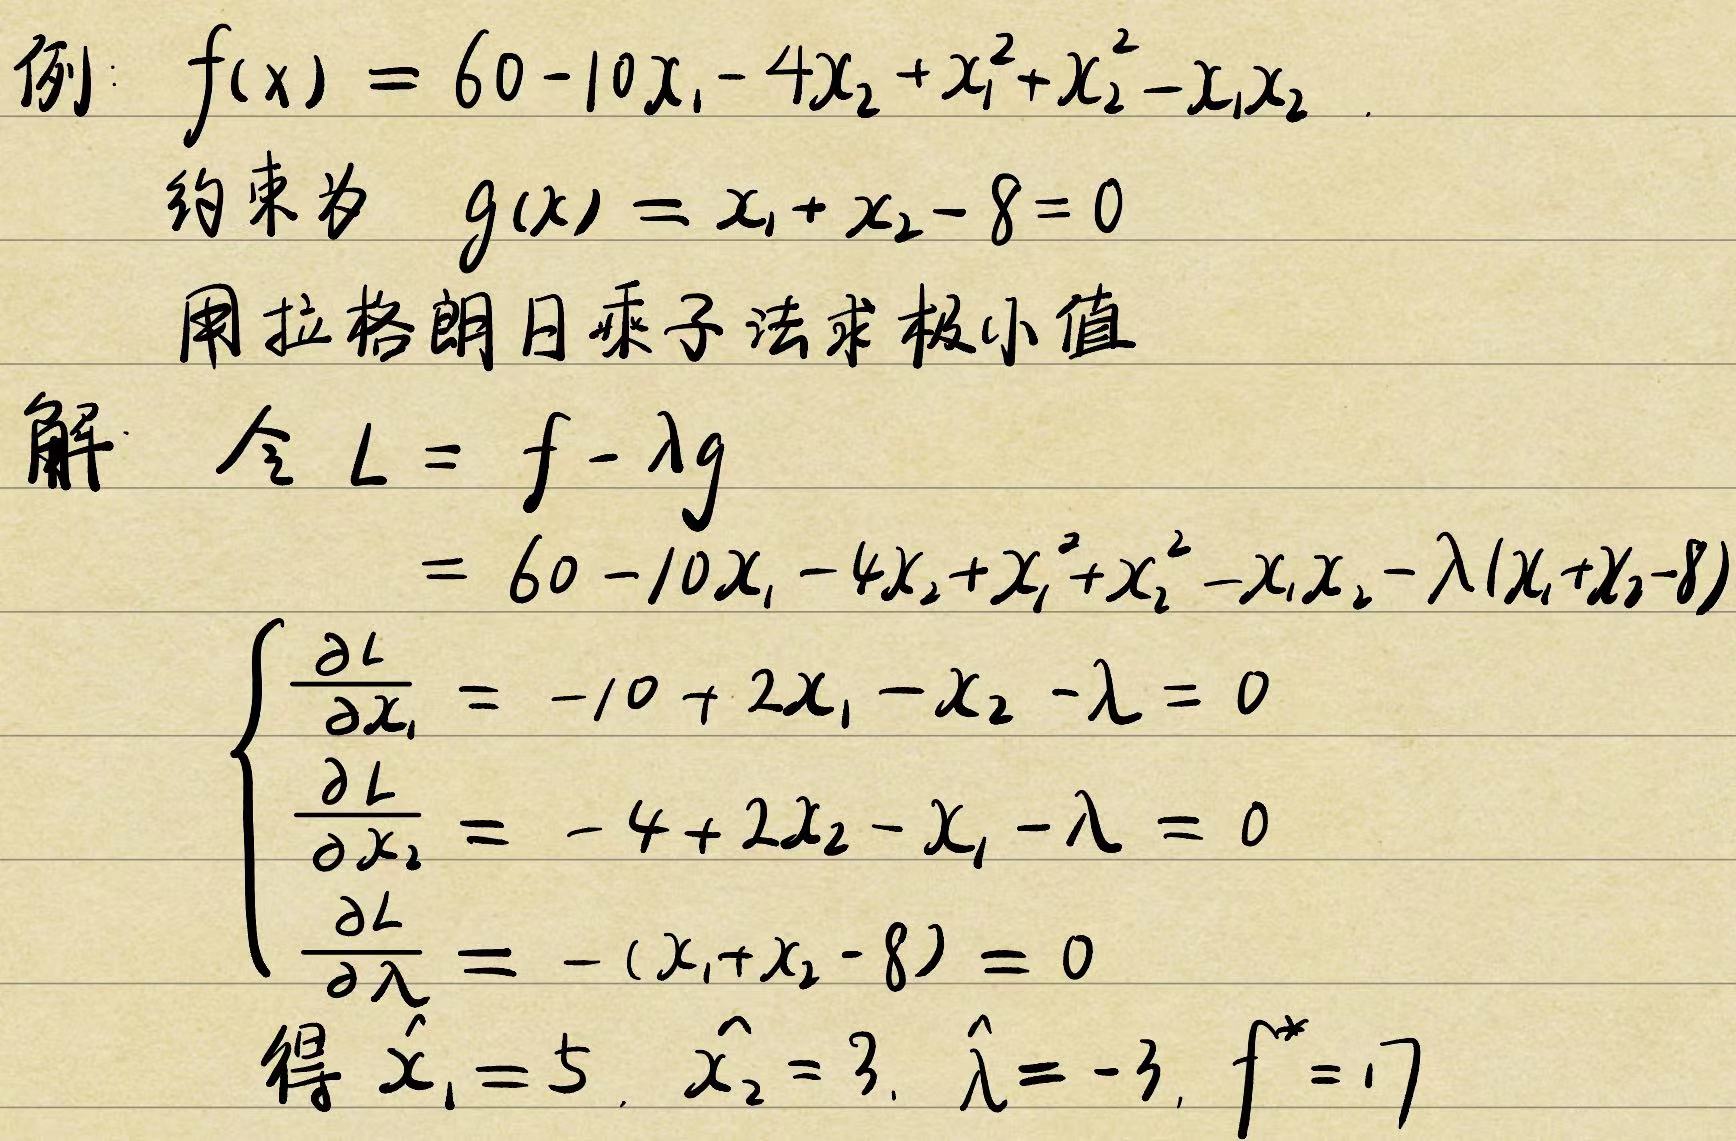 例: f(x) = 60 - 10x₁ - 4x₂ + x₁² + x₂² - x₁x₂.
约束为 g(x) = x₁ + x₂ - 8 = 0
用拉格朗日乘子法求极小值
解: 令 L = f - λg
= 60 - 10x₁ - 4x₂ + x₁² + x₂² - x₁x₂ - λ(x₁ + x₂ - 8)
∂L/∂x₁ = -10 + 2x₁ - x₂ - λ = 0
∂L/∂x₂ = -4 + 2x₂ - x₁ - λ = 0
∂L/∂λ = -(x₁ + x₂ - 8) = 0
得 x̂₁ = 5. x̂₂ = 3. λ̂ = -3, f* = 17